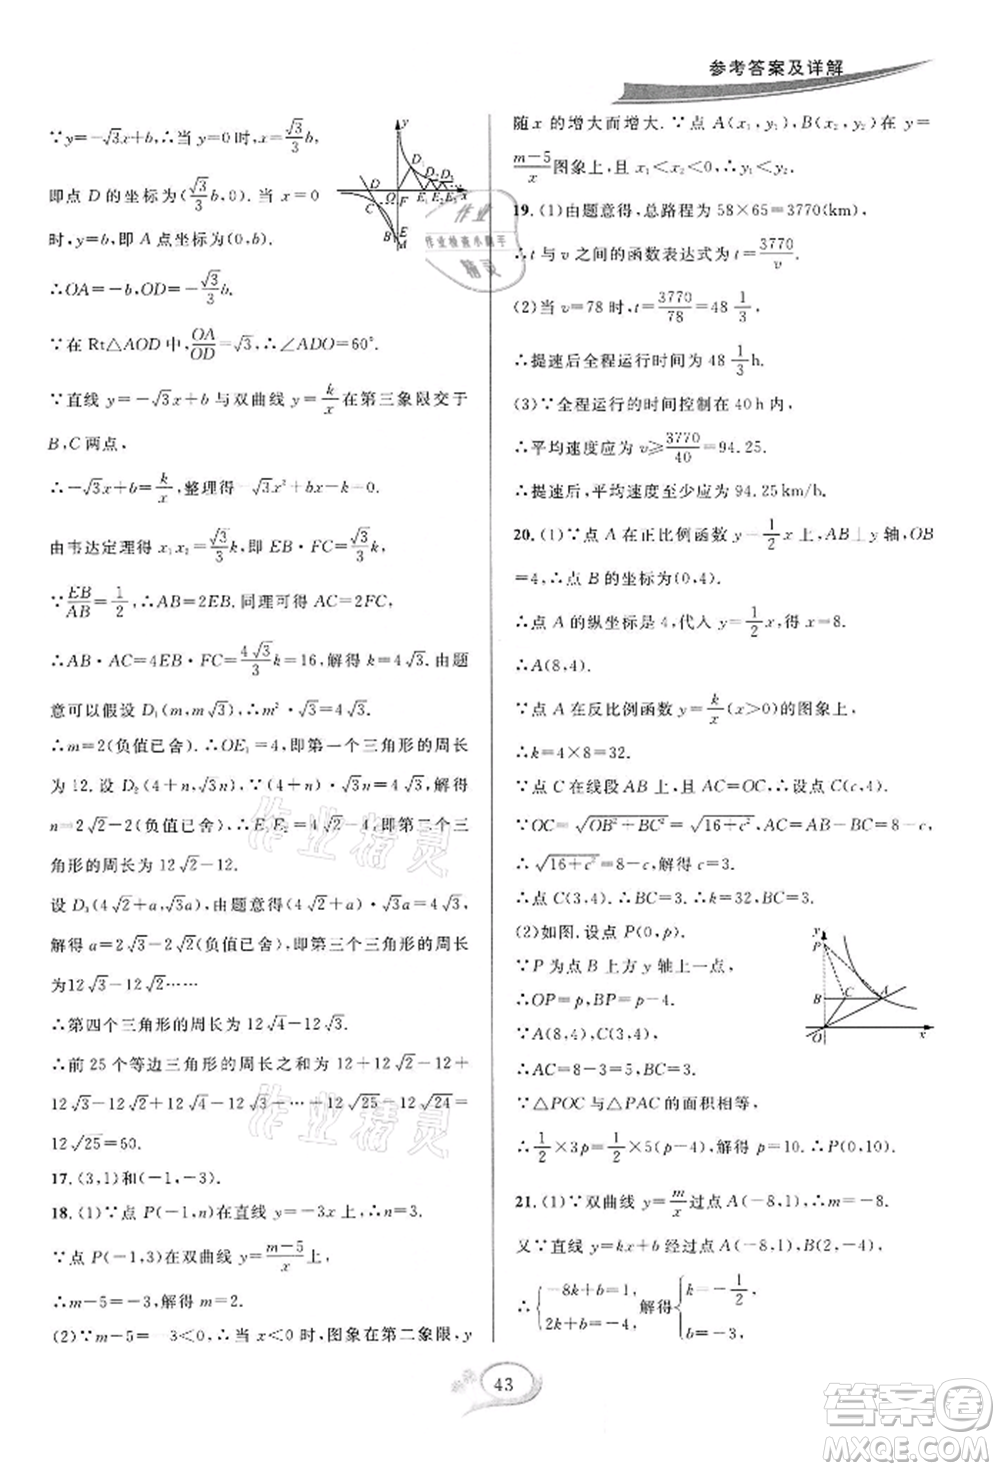 参考答案及详解
∵y=-√3x+b,∴当 y=0 时,x=√3/3 b,
即点 D 的坐标为(√3/3 b,0). 当 x=0
时,y=b,即 A 点坐标为(0,b).
∴OA=-b,OD=-√3/3 b.
∵在 Rt△AOD 中,OA/OD=√3,∴∠ADO=60°.
∵直线 y=-√3x+b 与双曲线 y=k/x 在第三象限交于
B,C 两点,
∴-√3x+b=k/x,整理得-√3x²+bx-k=0.
由韦达定理得 x₁x₂=√3/3 k,即 EB·FC=√3/3 k,
∵EB/AB=1/2,∴AB=2EB.同理可得 AC=2FC,
∴AB·AC=4EB·FC=4√3/3 k=16,解得 k=4√3.由题
意可以假设 D₁(m,m√3),∴m²·√3=4√3.
∴m=2(负值已舍).∴OE₁=4,即第一个三角形的周长
为 12.设 D₂(4+n,√3n),∵(4+n)·√3n=4√3,解得
n=2√2-2(负值已舍),∴E₁E₂=4√2-4,即第二个三
角形的周长为 12√2-12.
设 D₃(4√2+a,√3a),由题意得(4√2+a)·√3a=4√3,
解得 a=2√3-2√2(负值已舍),即第三个三角形的周长
为12√3-12√2……
∴第四个三角形的周长为 12√4-12√3.
∴前 25 个等边三角形的周长之和为 12+12√2-12+
12√3-12√2+12√4-12√3+…+12√25-12√24=
12√25=60.
17.(3,1)和(-1,-3).
18.(1)∵点 P(-1,n)在直线 y=-3x上,∴n=3.
∵点 P(-1,3)在双曲线 y=m-5/x上,
∴m-5=-3,解得 m=2.
(2)∵m-5=-3<0,∴当 x<0 时,图象在第二象限,y
随 x 的增大而增大.∵点 A(x₁,y₁),B(x₂,y₂)在 y=
m-5/x图象上,且 x₁<x₂<0,∴y₁<y₂.
19.(1)由题意得,总路程为 58×65=3770(km),
∴t 与 v 之间的函数表达式为 t=3770/v.
(2)当 v=78 时,t=3770/78=48 1/3,
∴提速后全程运行时间为 48 1/3h.
(3)∵全程运行的时间控制在 40 h 内,
∴平均速度应为 v≥3770/40=94.25.
∴提速后,平均速度至少应为 94.25 km/h.
20.(1)∵点 A 在正比例函数 y=1/2x 上,AB⊥y 轴,OB
=4,∴点 B 的坐标为(0,4).
∴点 A 的纵坐标是 4,代入 y=1/2x,得 x=8.
∴A(8,4).
∵点 A 在反比例函数 y=k/x(x>0)的图象上,
∴k=4×8=32.
∵点 C 在线段 AB 上,且 AC=OC,∴设 C(c,4).
∵OC=√OB²+BC²=√16+c²,AC=AB-BC=8-c,
∴√16+c²=8-c,解得 c=3.
∴点 C(3,4).∴BC=3.∴k=32,BC=3.
(2)如图,设点 P(0,p).
∵P 为点 B 上方 y 轴上一点,
∴OP=p,BP=p-4.
∵A(8,4),C(3,4),
∴AC=8-3=5.
∵△POC 与△PAC 的面积相等,
∴1/2×3p=1/2×5(p-4),解得 p=10.∴P(0,10).
21.(1)∵双曲线 y=m/x过点 A(-8,1),∴m=-8.
又∵直线 y=kx+b 经过点 A(-8,1),B(2,-4),
∴{-8k+b=1, 2k+b=-4, 解得{k=-1/2, b=-3.
43
作业精灵
答案圈
MXQE.COM